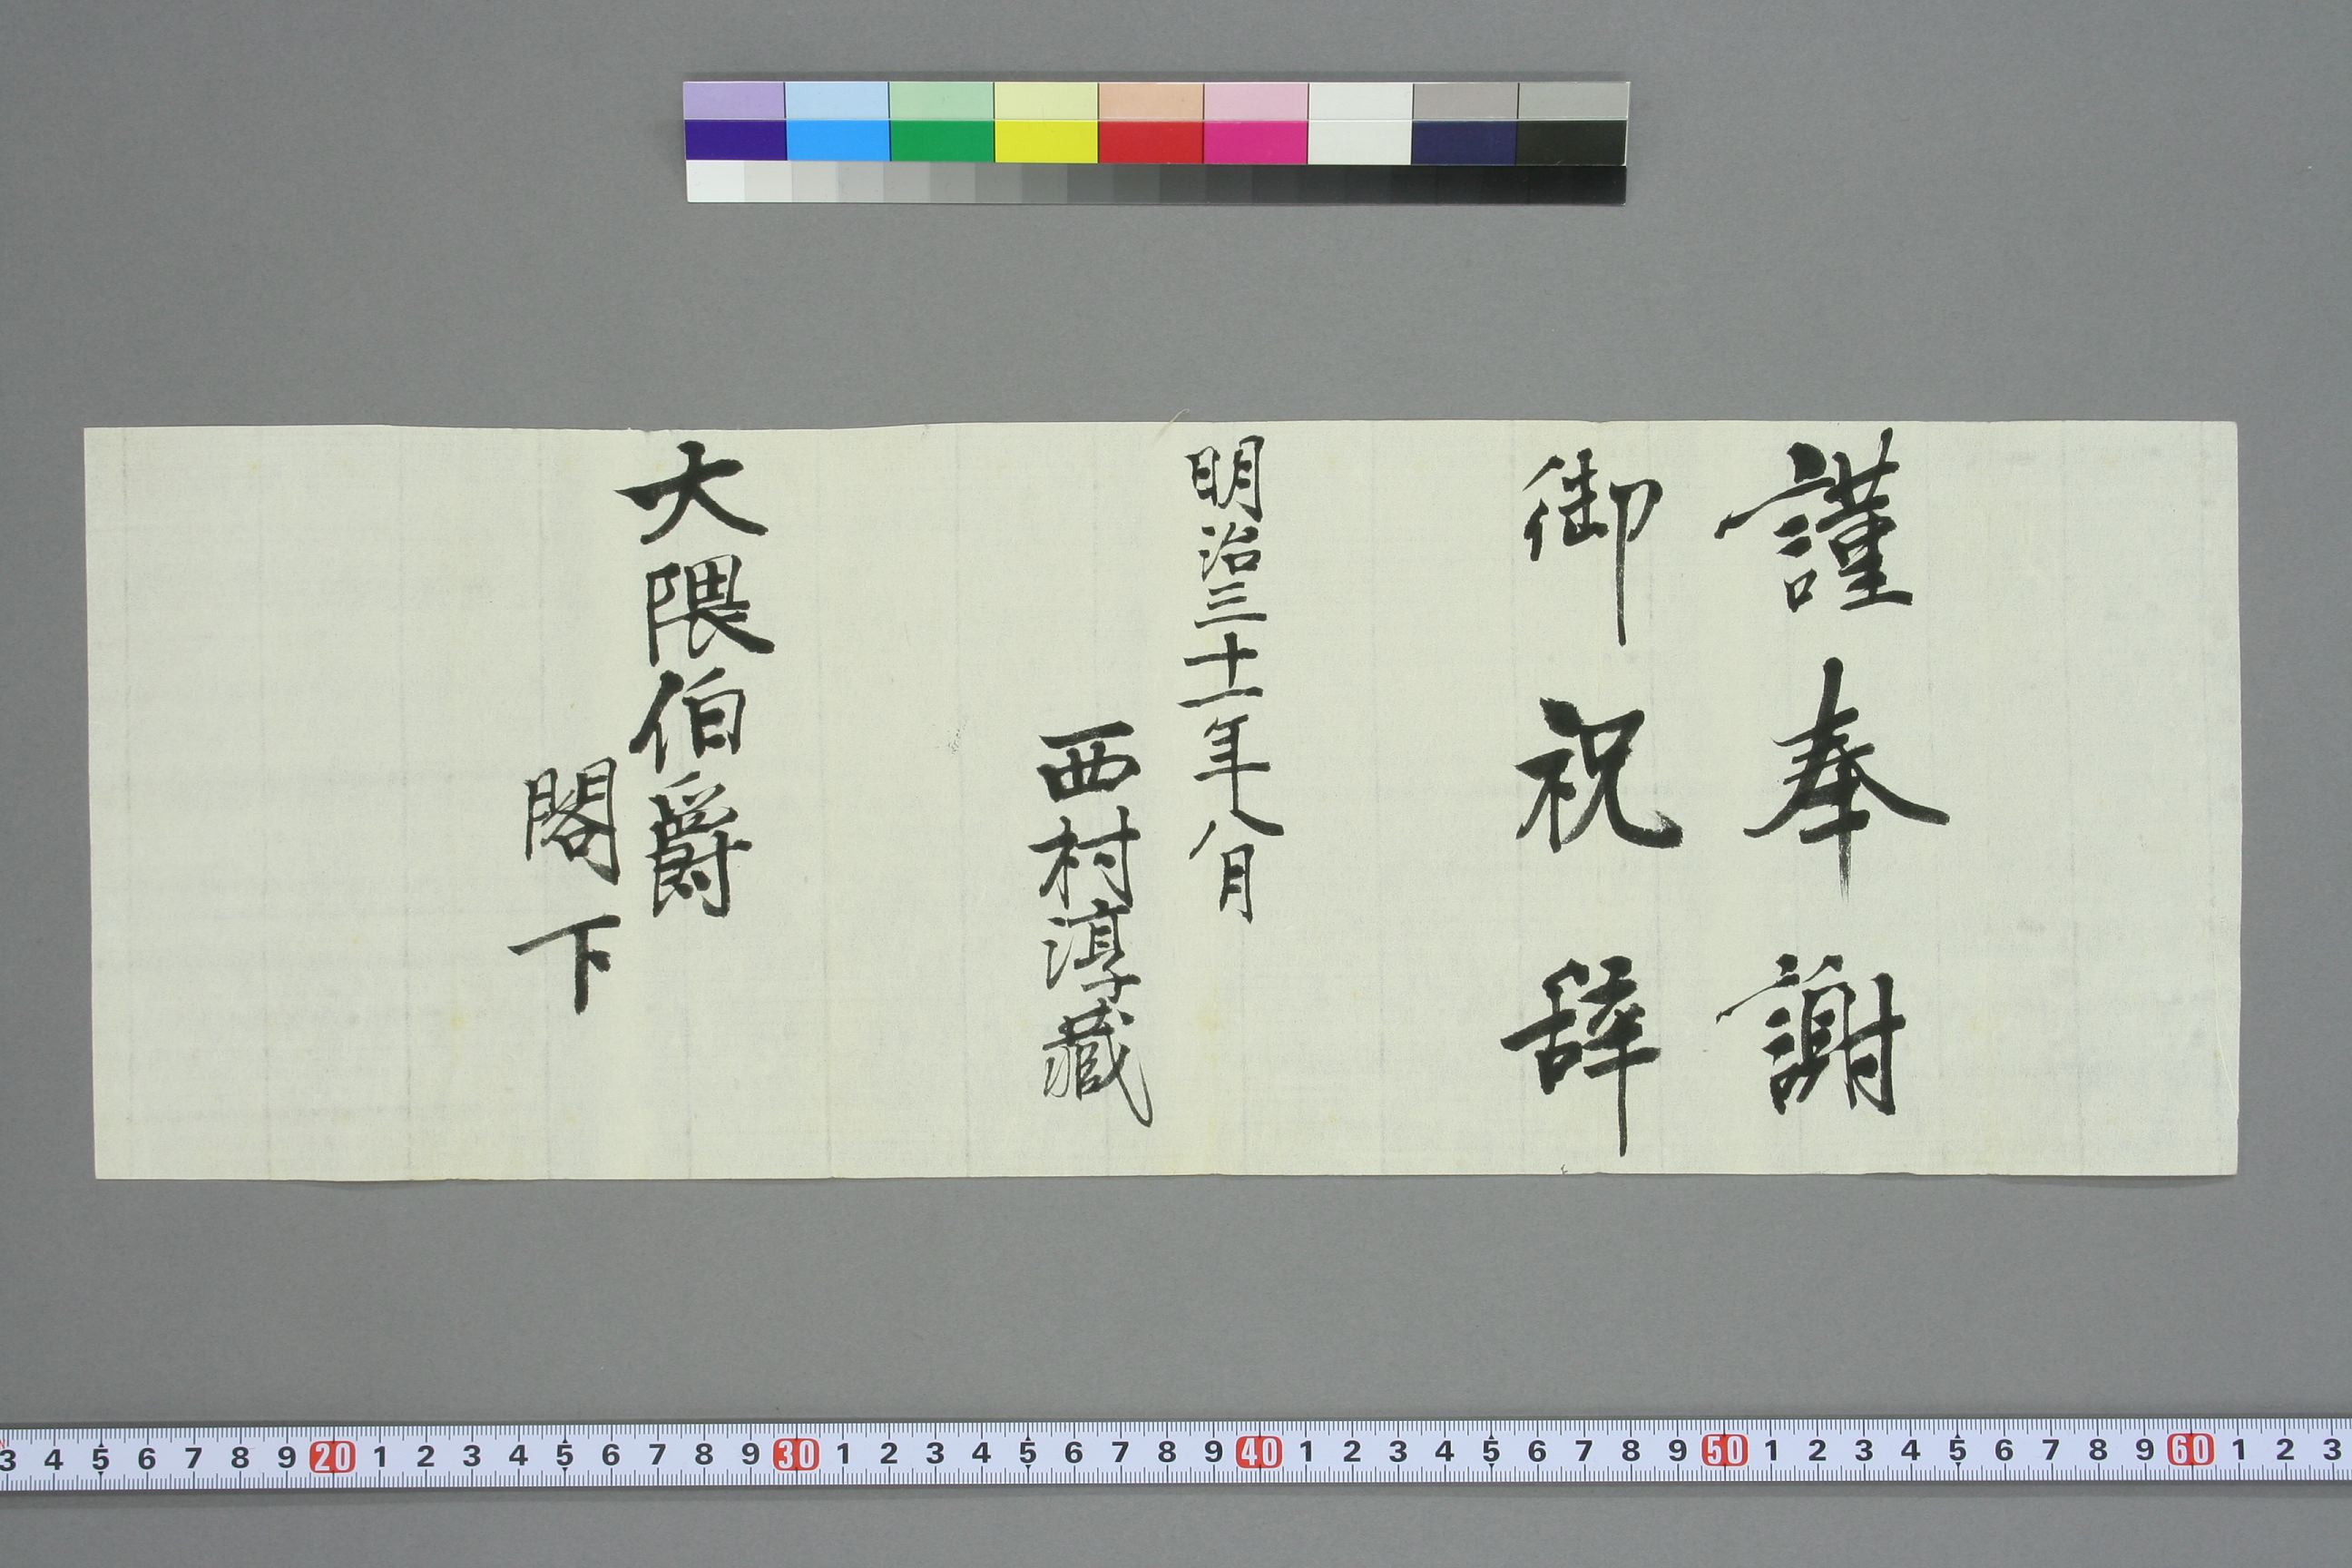 謹奉謝
御祝辞
明治三十一年八月
西村淳藏
大隈伯爵
閣下
3 4 5 6 7 8 9 20 1 2 3 4 5 6 7 8 9 30 1 2 3 4 5 6 7 8 9 40 1 2 3 4 5 6 7 8 9 50 1 2 3 4 5 6 7 8 9 60 1 2 3